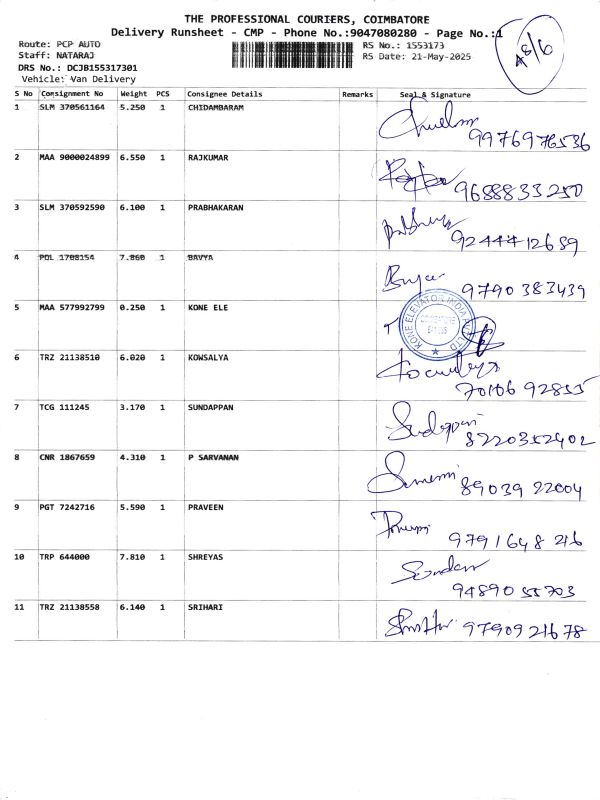 THE PROFESSIONAL COURIERS, COIMBATORE
Delivery Runsheet - CMP - Phone No.:9047080280 - Page No.:1
Route: PCP AUTO
RS No.: 1553173
Staff: NATARAJ
RS Date: 21-May-2025
DRS No.: DCJB155317301
Vehicle: Van Delivery
48/6
S No Consignment No Weight PCS Consignee Details Remarks Seal & Signature
1 SLM 370561164 5.250 1 CHIDAMBARAM
9976976536
2 MAA 9000024899 6.550 1 RAJKUMAR
9688833250
3 SLM 370592590 6.100 1 PRABHAKARAN
9244412659
4 POL 1708154 7.860 1 BAVYA
9790383439
5 MAA 577992799 0.250 1 KONE ELE
KONE ELEVATOR INDIA PVT LTD
COIMBATORE
6 TRZ 21138510 6.020 1 KOWSALYA
7010692855
7 TCG 111245 3.170 1 SUNDAPPAN
Sundappan
8220352402
8 CNR 1867659 4.310 1 P SARVANAN
8903922004
9 PGT 7242716 5.590 1 PRAVEEN
9791648216
10 TRP 644000 7.810 1 SHREYAS
9489055703
11 TRZ 21138558 6.140 1 SRIHARI
9790921678